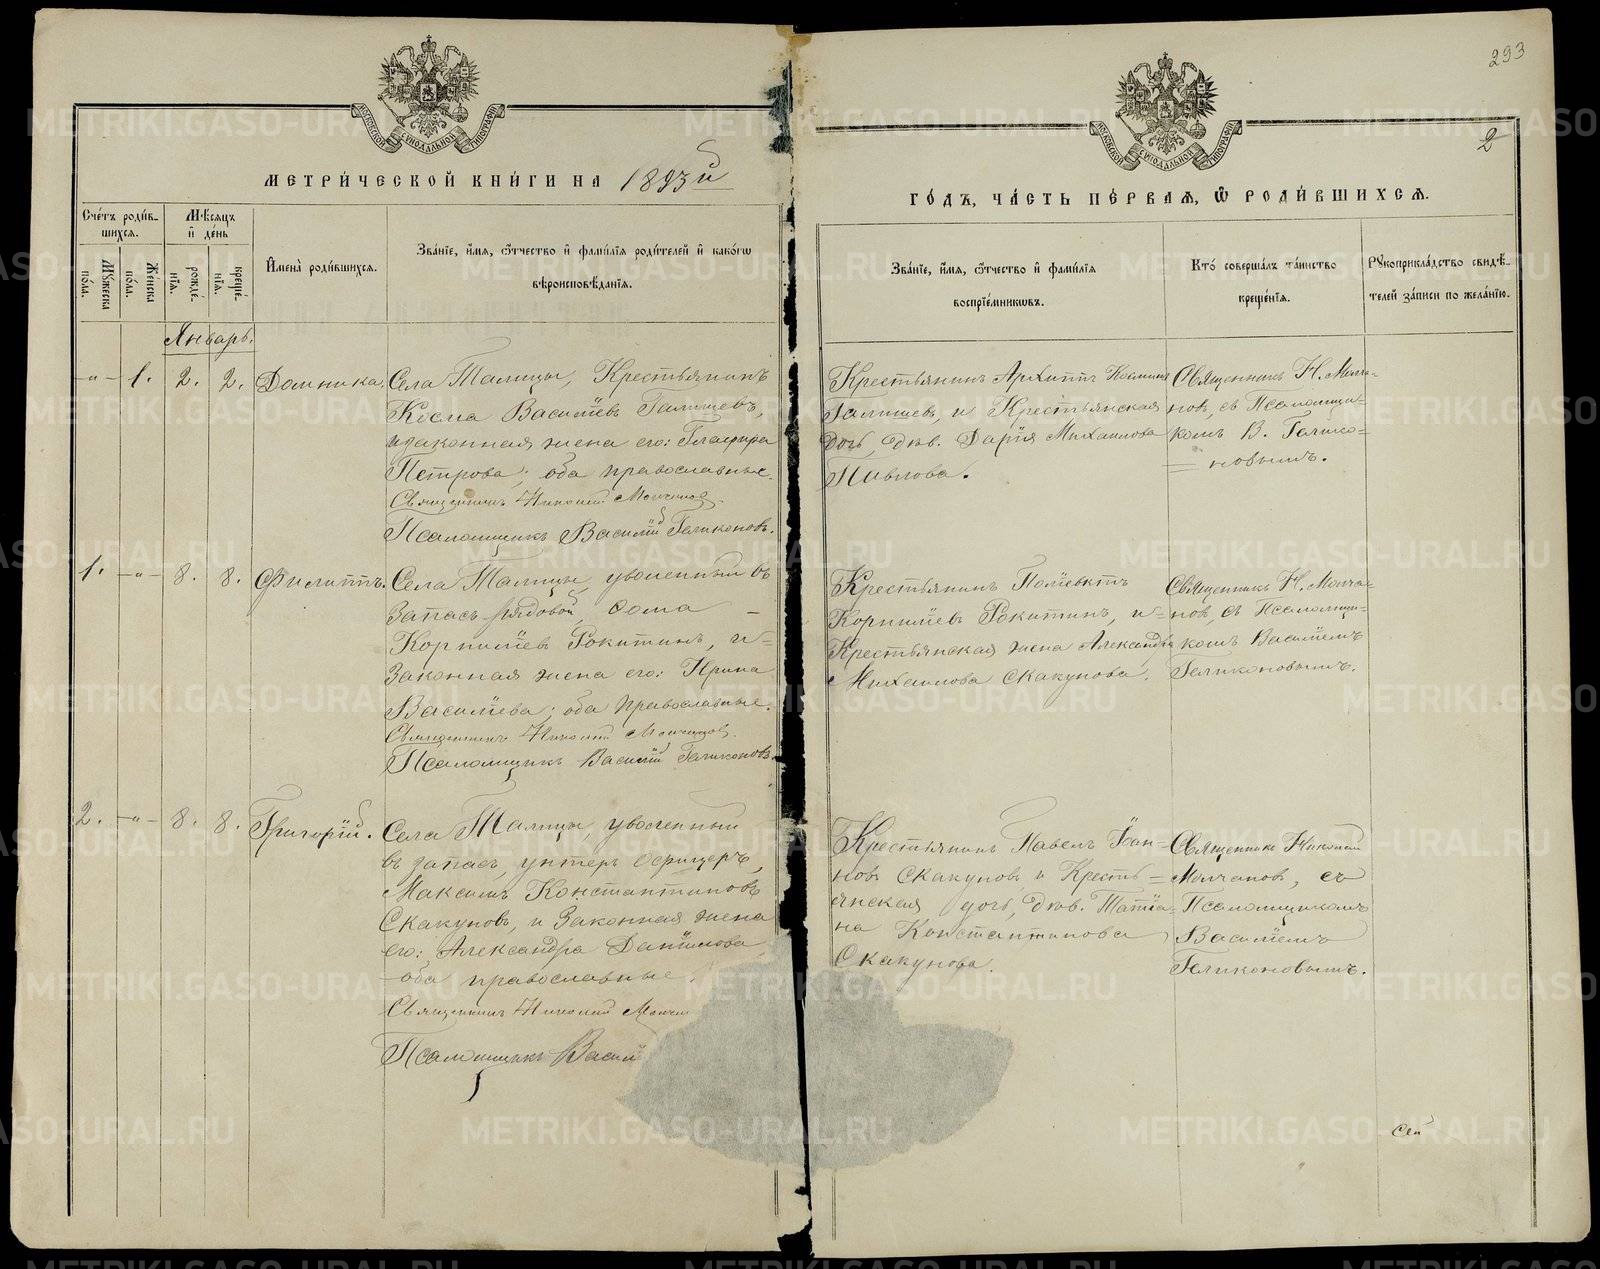 293
2
МОСКОВСКОЙ СѴНОДАЛЬНОЙ ТИПОГРАФІИ
МОСКОВСКОЙ СѴНОДАЛЬНОЙ ТИПОГРАФІИ
МЕТРИ́ЧЕСКОЙ КНИ́ГИ НА 1893й
ГО́ДЪ, ЧА́СТЬ ПЕ́РВАѦ, Ѡ҆ РОДИ́ВШИХСѦ.
Сче́тъ роди́в-
шихсѧ.
Мꙋ́жеска
по́ла.
Же́нска
по́ла.
Мѣ́сѧцъ
и҆ де́нь
рожде́
нїѧ.
креще́
нїѧ.
И҆мена̀ роди́вшихсѧ.
Зва́нїе, и҆́мѧ, ѻ҆́тчество и҆ фами́лїѧ роди́телей и҆ како́гѡ
вѣроисповѣ́данїѧ.
Зва́нїе, и҆́мѧ, ѻ҆́тчество и҆ фами́лїѧ
воспрїе́мниковъ.
Кто́ соверша́лъ та́инство
креще́нїѧ.
Рꙋкоприкла́дство свидѣ́-
телей за́писи по жела́нїю.
Январь.
-"- 1. 2. 2. Домника.
Села Талицы, Крестьянинъ
Косма Василіевъ Галишевъ,
и законная жена его: Глафира
Петрова; оба православные.
Священникъ Николай Молчановъ.
Псаломщикъ Василій Геликоновъ.
Крестьянинъ Архиппъ Косминъ
Галишевъ, и Крестьянская
дочь, дѣв. Дарія Михаилова
Павлова.
Священникъ Н. Молча-
новъ, съ Псаломщи-
комъ В. Гелико-
новымъ.
1. -"- 8. 8. Филиппъ.
Села Талицы, уволенный въ
Запасъ рядовой, Фома
Корниліевъ Рокитинъ, и
Законная жена его: Ирина
Василіева; оба православные.
Священникъ Николай Молчановъ.
Псаломщикъ Василій Геликоновъ.
Крестьянинъ Поліевктъ
Корниліевъ Рокитинъ, и
Крестьянская жена Александра
Михаилова Скакунова.
Священникъ Н. Молча-
новъ, съ Псаломщи-
комъ Василіемъ
Геликоновымъ.
2. -"- 8. 8. Григорій.
Села Талицы, уволенный
въ запасъ, унтеръ Офицеръ,
Максимъ Константиновъ
Скакуновъ, и Законная жена
его: Александра Даніилова
оба православные.
Священникъ Николай Молчан
Псаломщикъ Васил
Крестьянинъ Павелъ Іоан-
новъ Скакуновъ и Кресть-
янская дочь, дѣв. Татіа-
на Константинова
Скакунова.
Священникъ Николай
Молчановъ, съ
Псаломщикомъ
Василіемъ
Геликоновымъ.
METRIKI.GASO-URAL.RU